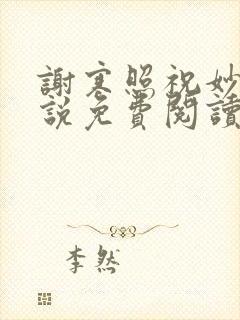 謝寒照祝妙
說免費閱讀
李然